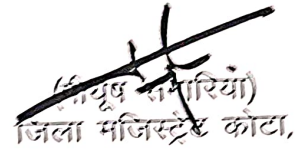 (पीयूष समारियां)
जिला मजिस्ट्रेट कोटा,